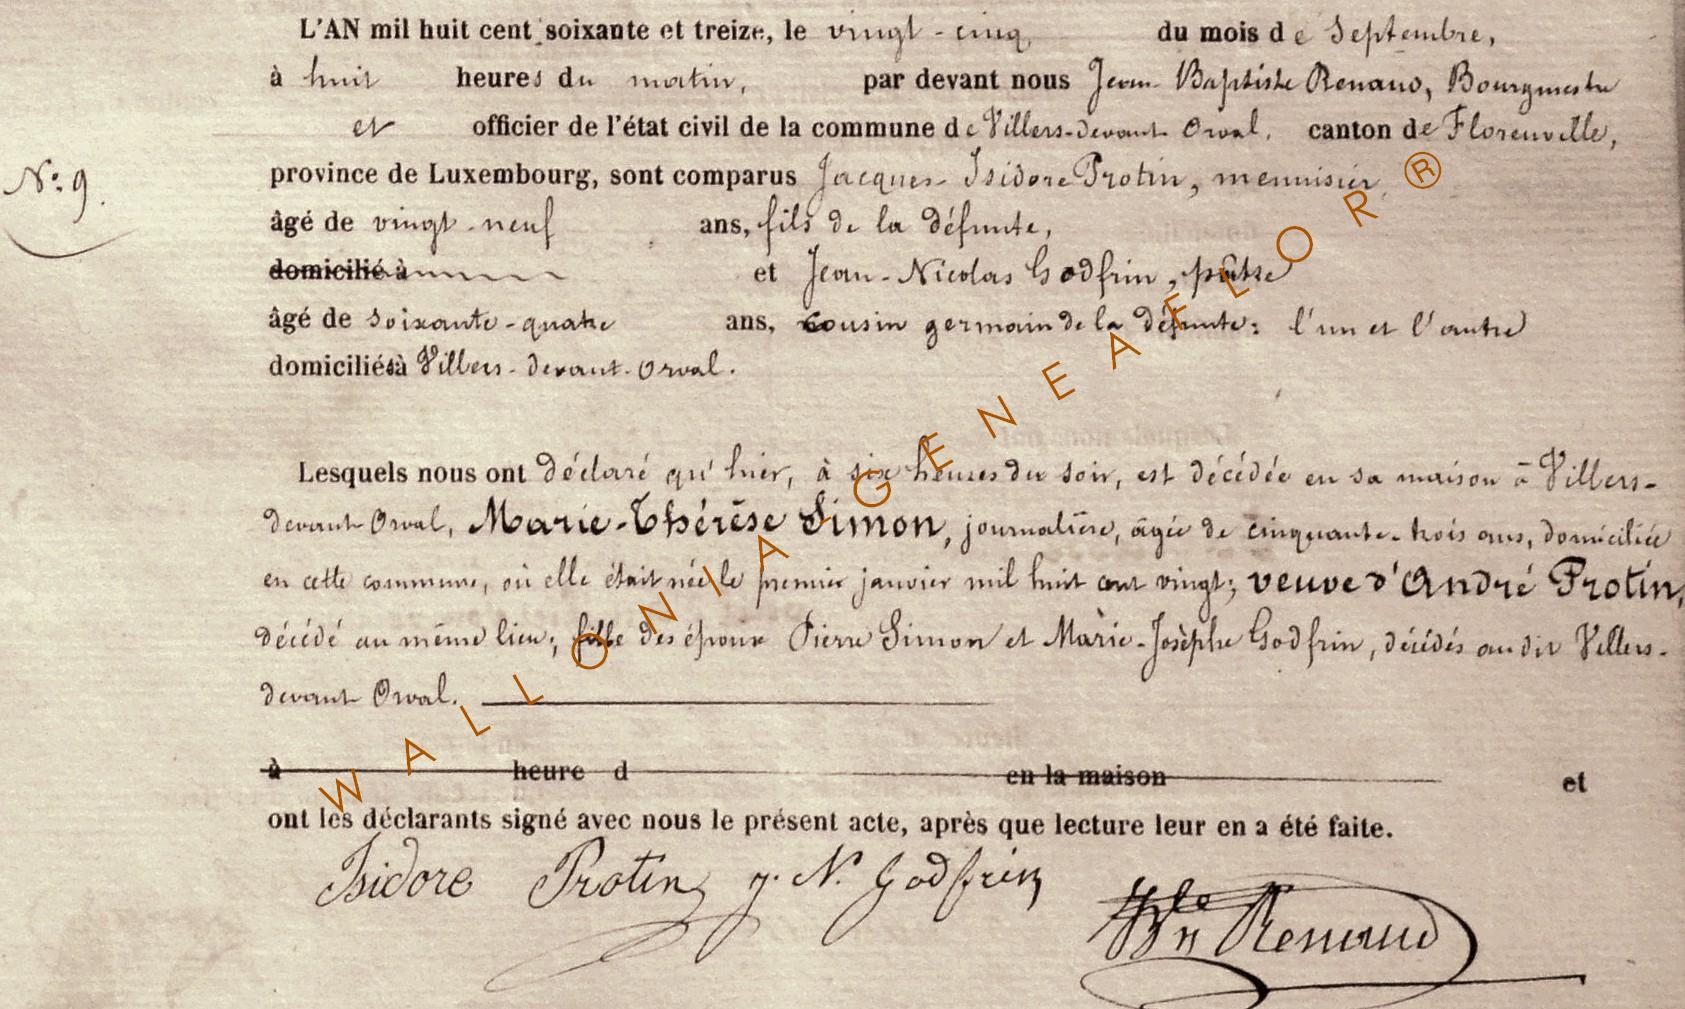 L'AN mil huit cent soixante et treize, le vingt-cinq du mois de Septembre,
à huit heures du matin, par devant nous Jean-Baptiste Renaud, Bourgmestre
et officier de l'état civil de la commune de Villers-devant-Orval, canton de Florenville,
N°: 9.
province de Luxembourg, sont comparus Jacques-Isidore Protin, menuisier,
âgé de vingt-neuf ans, fils de la défunte,
domicilié à et Jean-Nicolas Godfrin, prêtre
âgé de soixante-quatre ans, cousin germain de la défunte: l'un et l'autre
domiciliés à Villers-devant-Orval.
Lesquels nous ont déclaré qu'hier, à six heures du soir, est décédée en sa maison à Villers-
devant-Orval, Marie-Thérèse Simon, journalière, âgée de cinquante-trois ans, domiciliée
en cette commune, où elle était née le premier janvier mil huit cent vingt; veuve d'André Protin,
décédé au même lieu; fille des époux Pierre Simon et Marie-Josèphe Godfrin, décédés audit Villers-
devant Orval.
à heure d en la maison et
ont les déclarants signé avec nous le présent acte, après que lecture leur en a été faite.
Isidore Protin J. N. Godfrin Renaud
WALLONIA GENEAFLOR ®